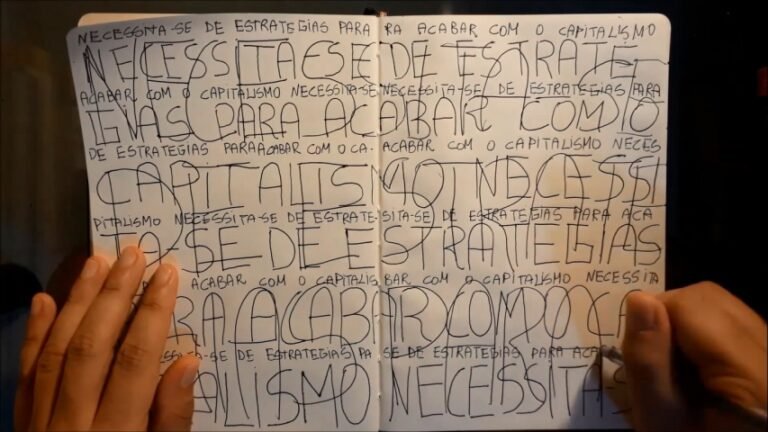 NECESSITA-SE DE ESTRATEGIAS PARA RA ACABAR COM O CAPITALISMO
NECESSITA-SE DE ESTRATE
ACABAR COM O CAPITALISMO NECESSITA-SE NECESSITA-SE DE ESTRATEGIAS PARA
GIAS PARA ACABAR COM O
DE ESTRATEGIAS PARA ACABAR COM O CA- ACABAR COM O CAPITALISMO NECES
CAPITALISMO NECESSI
PITALISMO NECESSITA-SE DE ESTRATE- SITA-SE DE ESTRATEGIAS PARA ACA
TA-SE DE ESTRATEGIAS
ACABAR COM O CAPITALIS BAR COM O CAPITALISMO NECESSITA
RA ACABAR COM O CA
SITA-SE DE ESTRATEGIAS PA SE DE ESTRATEGIAS PARA ACABA
ALISMO NECESSITA-S